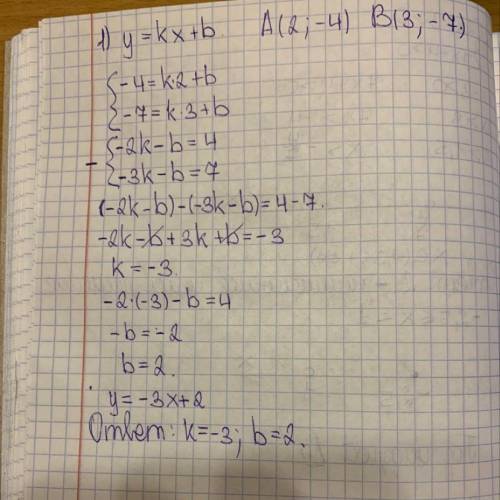 1) y = kx + b. A(2; -4) B(3; -7)
{ -4 = k·2 + b
{ -7 = k·3 + b
- { -2k - b = 4
{ -3k - b = 7
(-2k - b) - (-3k - b) = 4 - 7.
-2k - b + 3k + b = -3
k = -3.
-2·(-3) - b = 4
-b = -2
b = 2.
y = -3x + 2
Ответ: k = -3; b = 2.